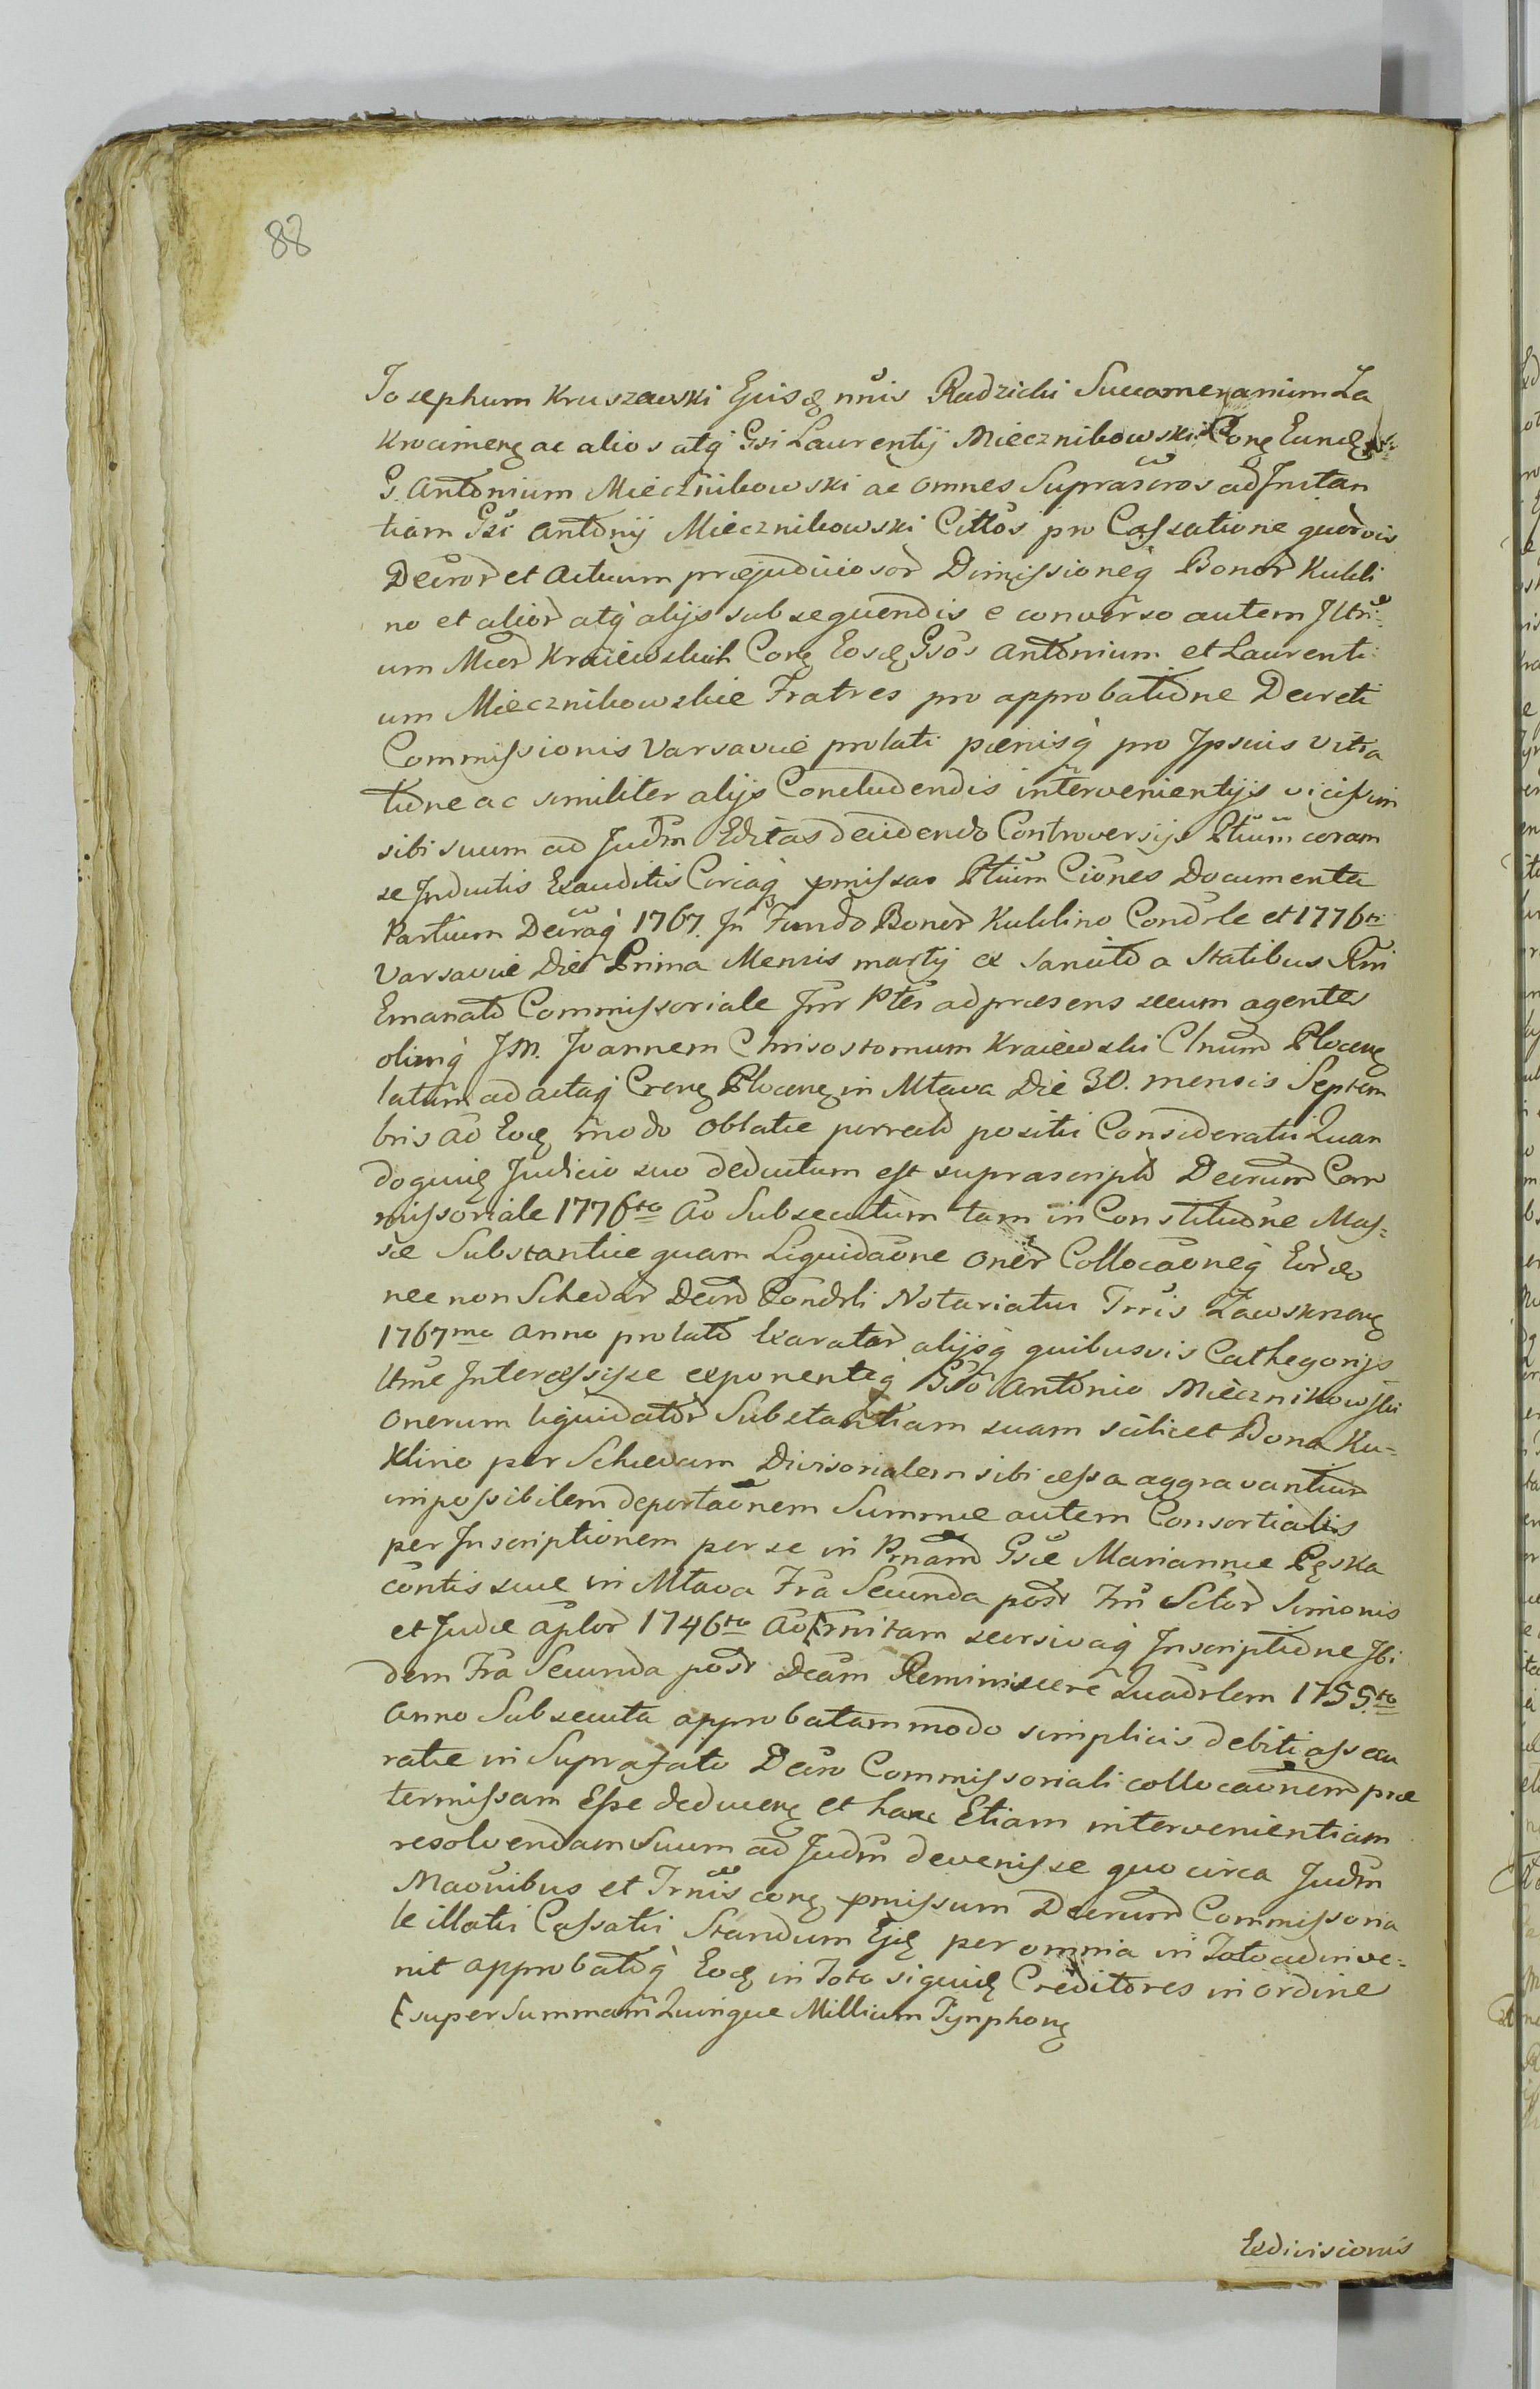 88
Josephum Kruszewski Ejusq nnis Radzicki Succamerarium Za
Krocimeng ac alios atq Gsi Laurentij Miecznikowski Cong Eundq
G. Antonium Miecznikowski ac omnes Suprascros ad Instan
tiam Gsi Antonij Miecznikowski Cittos pro Cassatione quorvis
Decror et Actuum præjudiciosor Dimissioneq Bonor Kukli
no et alior atq alijs subsequendis e converso autem Iltri
um Mcor Kraiewskich Cong Eosdq Gsos Antonium et Laurenti
um Miecznikowskie Fratres pro approbatione Decreti
Commissionis Varsaviæ prolati pænisq pro Ipsius Vitia
tione ac similiter alijs Concludendis intervenientijs vicissim
sibi suum ad Judm Editas decidendo Controversijs Ptium coram
se Inductis Exauditis Circaq pmissas Ptium Ciones Documenta
Partium Decraq 1767. In Fundo Bonor Kuklino Condrle et 1776ti
Varsaviæ Die Prima Mensis martij ex Sancito a Statibus Rni
Emanato Commissoriale Inr Ptes ad præsens secum agentes
olimq JM. Joannem Chrisostomum Kraiewski Clnum Plocens
latum ad actaq Crens Plocens in Mtava Die 30. mensis Septem
bris Ao Eodq modo Oblatæ porrecto positi Consideratis Quan
doquidq Judicio suo deductum est suprascripto Decrum Com
missoriale 1776to Ao Subsecutum tam in Constitutione Mas=
sæ Substantiæ quam Liquidaone Oner Collocaoneq Eordo
nec non Schedar Decro Condrli Notariatus Trris Zawskrzens
1767mo Anno prolato Exaratar alijsq quibusvis Cathegorijs
Ittme Intercessisse exponenteq Gso Antonio Miecznikowski
Onerum liquidator Substantiam suam scilicet Bona Ku=
klino per Schedam Divisorialem sibi cessa aggravantium
impossibilem deportaonem Summæ autem Consortialis
per Inscriptionem per se in Psnam Gsæ Mariannæ Pęska
contis suæ in Mtava Fra Secunda post Fm Sctor Simonis
et Judæ aplor 1746to Ao [rnitam seorsivaq Inscriptione Ibi
dem Fra Secunda post Dcam Reminiscere Quadrlem 1755to
Anno Subsecuta approbatam modo simplicis debiti assecu
ratæ in Suprafato Decro Commissoriali collocaonem præ
termissam Esse deducens et hanc Etiam intervenientiam
resolvendam Suum ad Judm devenisse quo circa Judm
Maonibus et Trnis cong pmissum Decrum Commissoria
le illatis Cassatis Standum Ejq per omnia in Toto adinve=
nit approbatoq Eodq in Toto siquidq Creditores in ordine
[ super Summam Quinque Millium Tynphong
Exdivisionis